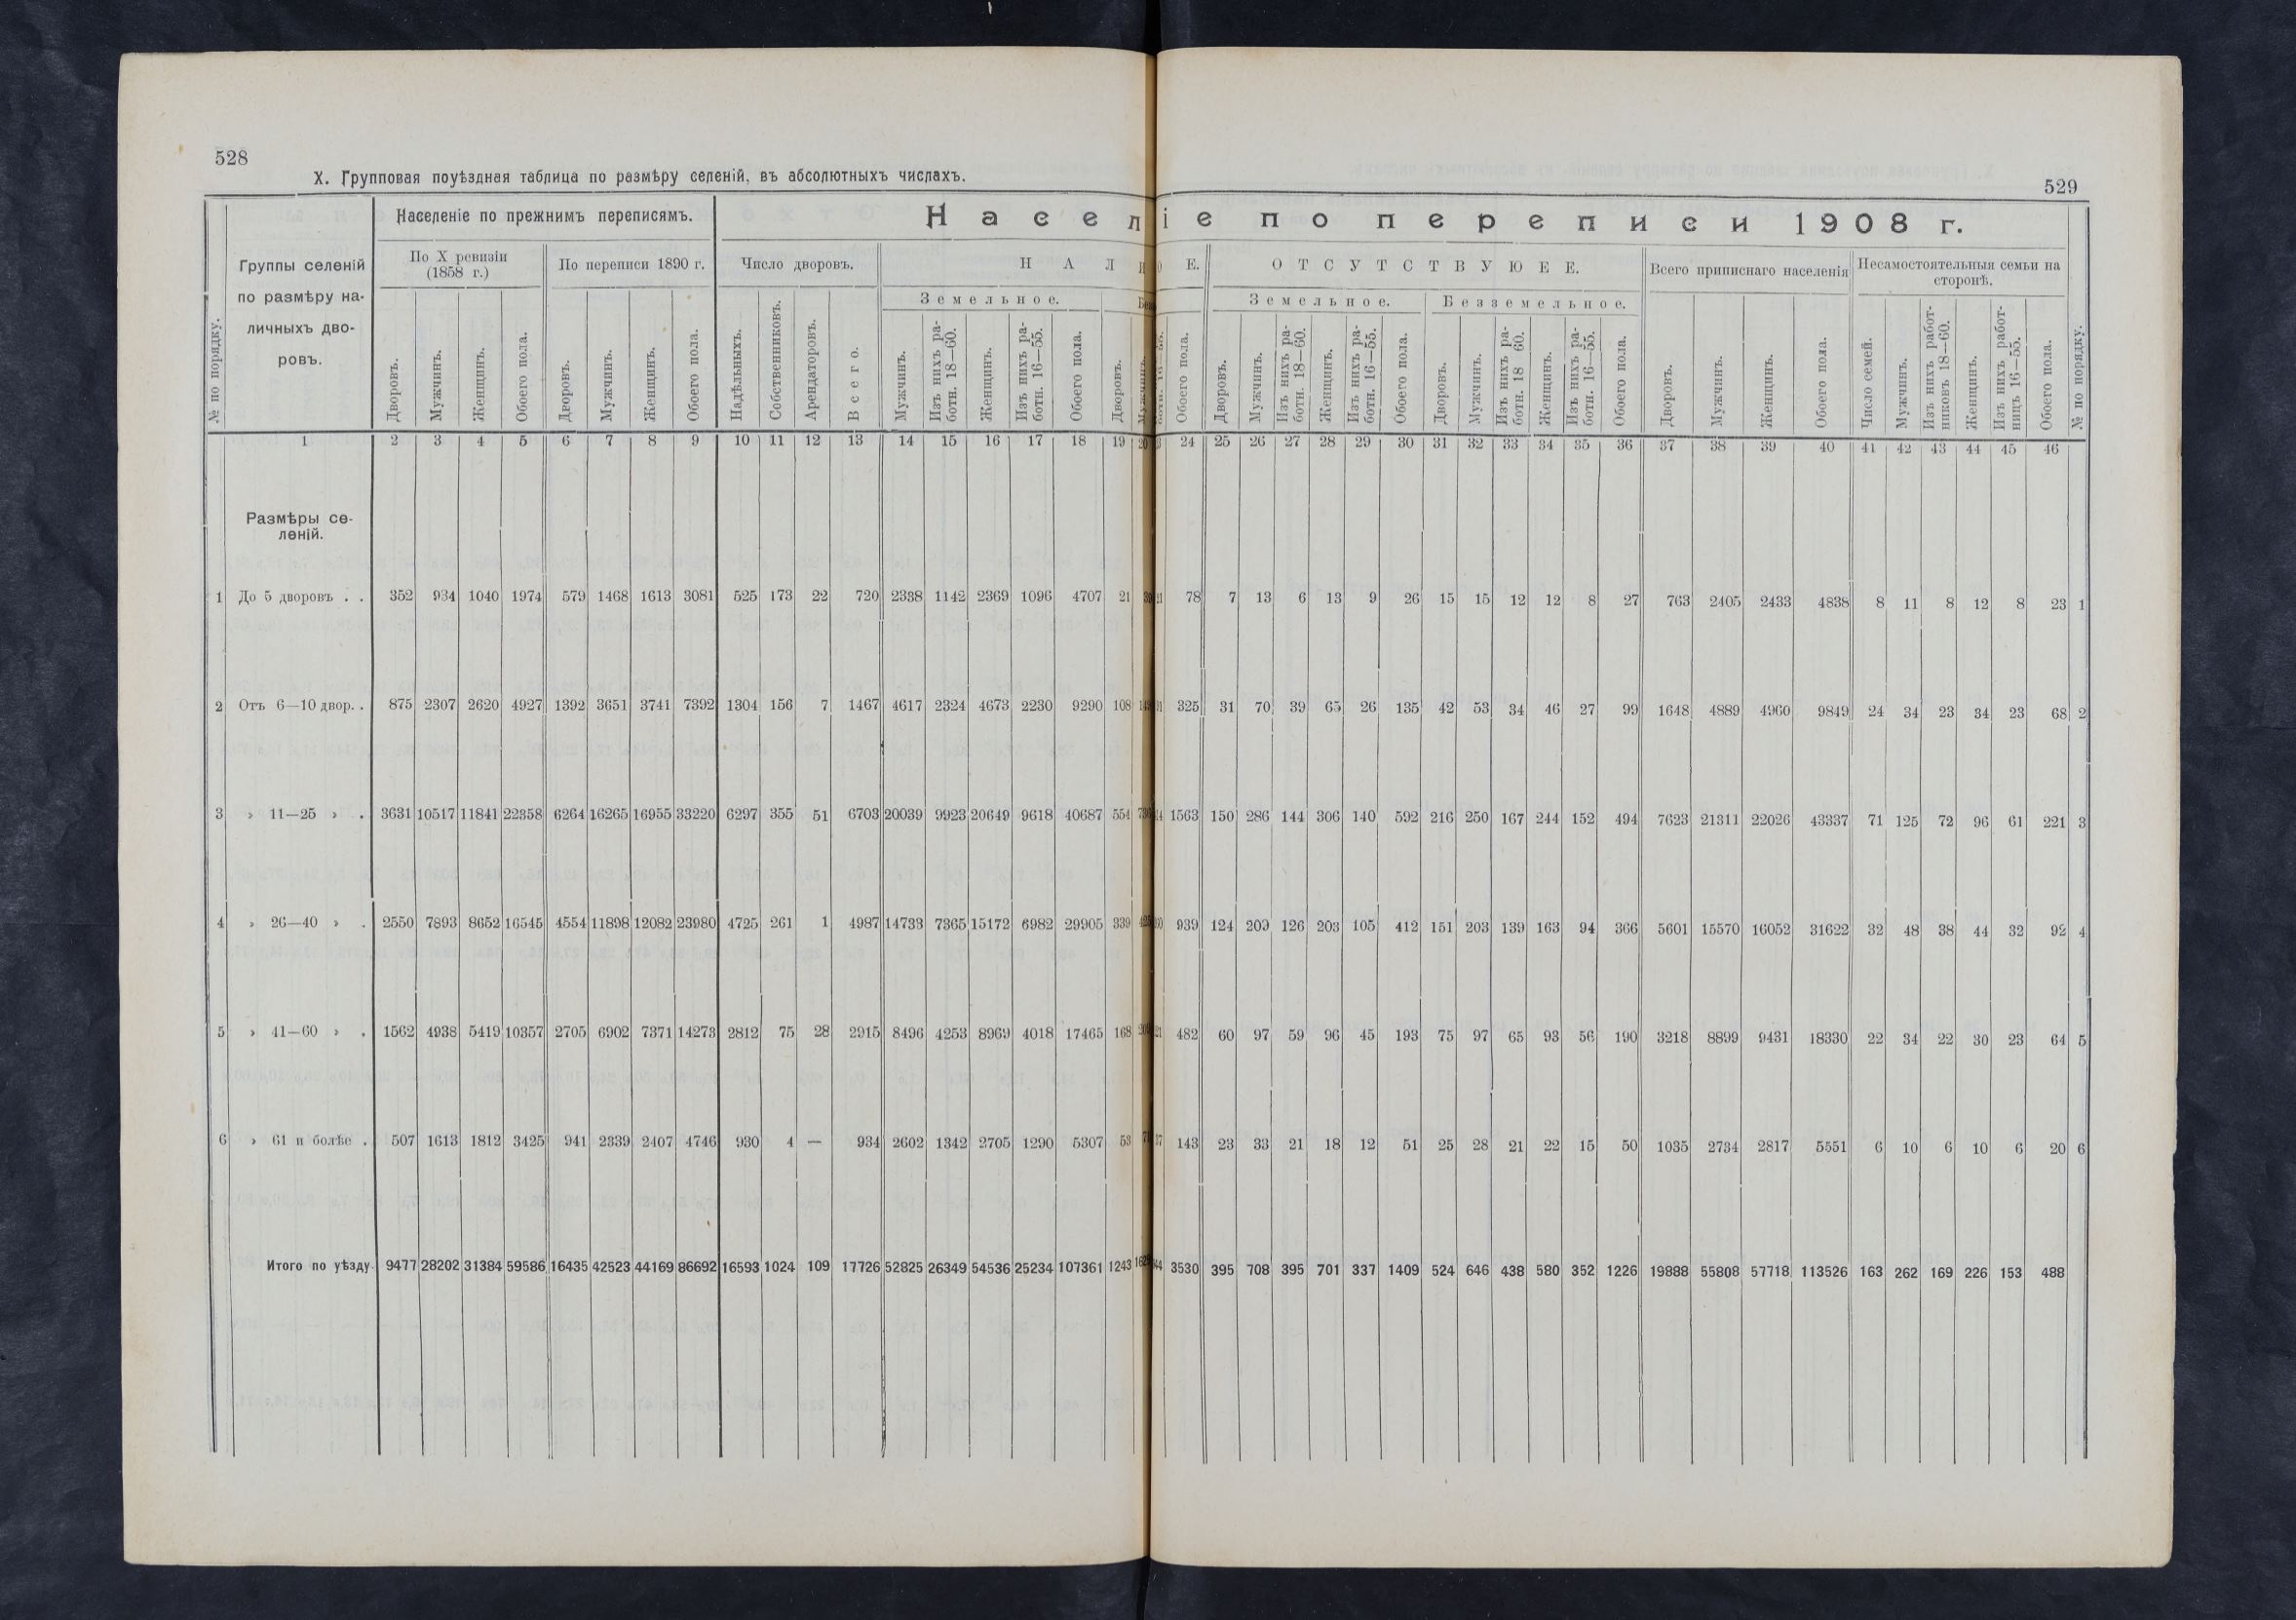 528
X. Групповая поуѣздная таблица по размѣру селеній, въ абсолютныхъ числахъ.
529
№ по порядку.
Группы селеній
по размѣру на-
личныхъ дво-
ровъ.
Населеніе по прежнимъ переписямъ.
По X ревизіи
(1858 г.)
По переписи 1890 г.
Населеніе по переписи 1908 г.
Число дворовъ.
НАЛ Е.
ОТСУТСТВУЮЕЕ.
Всего приписнаго населенія
Несамостоятельныя семьи на
сторонѣ.
Земельное.
Земельное.
Безземельное.
Дворовъ. Мужчинъ. Женщинъ. Обоего пола. Дворовъ. Мужчинъ. Женщинъ. Обоего пола. Надѣльныхъ. Собственниковъ. Арендаторовъ. Всего. Мужчинъ. Изъ нихъ ра-ботн. 18—60. Женщинъ. Изъ нихъ ра-ботн. 16—55. Обоего пола. Дворовъ. Мужчинъ.
Обоего пола. Дворовъ. Мужчинъ. Изъ нихъ ра-ботн. 18—60. Женщинъ. Изъ нихъ ра-ботн. 16—55. Обоего пола. Дворовъ. Мужчинъ. Изъ нихъ ра-ботн. 18 60. Женщинъ. Изъ нихъ ра-ботн. 16—55. Обоего пола. Дворовъ. Мужчинъ. Женщинъ. Обоего пола. Число семей. Мужчинъ. Изъ нихъ работ-никовъ 18—60. Женщинъ. Изъ нихъ работ-ницъ 16—55. Обоего пола. № по порядку.
1 2 3 4 5 6 7 8 9 10 11 12 13 14 15 16 17 18 19 20 24 25 26 27 28 29 30 31 32 33 34 35 36 37 38 39 40 41 42 43 44 45 46
Размѣры се-
леній.
1 До 5 дворовъ . . 352 934 1040 1974 579 1468 1613 3081 525 173 22 720 2338 1142 2369 1096 4707 21 78 7 13 6 13 9 26 15 15 12 12 8 27 763 2405 2433 4838 8 11 8 12 8 23 1
2 Отъ 6—10 двор. . 875 2307 2620 4927 1392 3651 3741 7392 1304 156 7 1467 4617 2324 4673 2230 9290 108 325 31 70 39 65 26 135 42 53 34 46 27 99 1648 4889 4960 9849 24 34 23 34 23 68 2
3 » 11—25 » . 3631 10517 11841 22358 6264 16265 16955 33220 6297 355 51 6703 20039 9923 20649 9618 40687 554 1563 150 286 144 306 140 592 216 250 167 244 152 494 7623 21311 22026 43337 71 125 72 96 61 221 3
4 » 26—40 » . 2550 7893 8652 16545 4554 11898 12082 23980 4725 261 1 4987 14733 7365 15172 6982 29905 339 939 124 209 126 203 105 412 151 203 139 163 94 366 5601 15570 16052 31622 32 48 38 44 32 92 4
5 » 41—60 » . 1562 4938 5419 10357 2705 6902 7371 14273 2812 75 28 2915 8496 4253 8969 4018 17465 168 482 60 97 59 96 45 193 75 97 65 93 56 190 3218 8899 9431 18330 22 34 22 30 23 64 5
6 » 61 и болѣе . 507 1613 1812 3425 941 2339 2407 4746 930 4 — 934 2602 1342 2705 1290 5307 53 143 23 33 21 18 12 51 25 28 21 22 15 50 1035 2734 2817 5551 6 10 6 10 6 20 6
Итого по уѣзду. 9477 28202 31384 59586 16435 42523 44169 86692 16593 1024 109 17726 52825 26349 54536 25234 107361 1243 3530 395 708 395 701 337 1409 524 646 438 580 352 1226 19888 55808 57718 113526 163 262 169 226 153 488